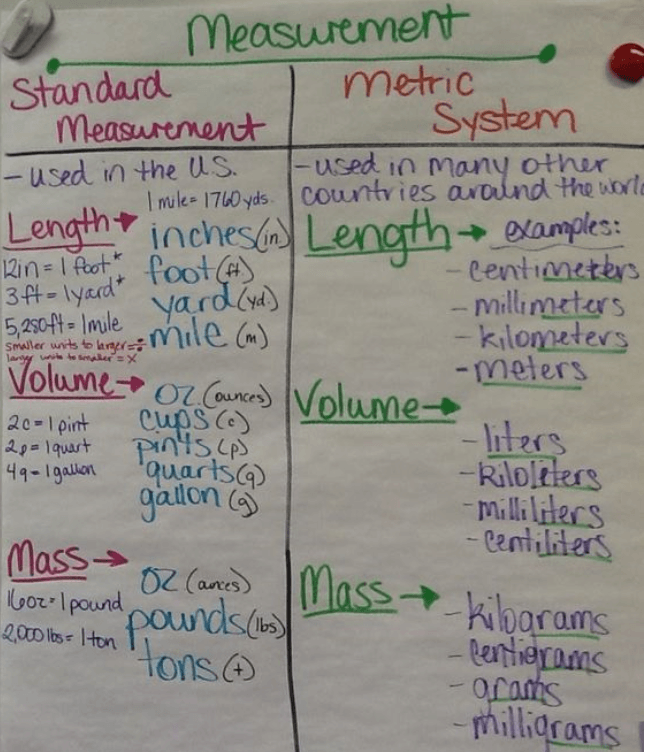 Measurement
Standard
Measurement
- used in the U.S.
1 mile = 1760 yds.
Length → inches (in)
12in = 1 foot* foot (ft.)
3ft = 1yard* yard (yd.)
5,280ft = 1mile mile (m)
smaller units to larger = ÷
larger units to smaller = x
Volume → OZ. (ounces)
2c = 1 pint cups (c)
2p = 1quart pints (p)
4q = 1gallon quarts (q)
gallon (g)
Mass → OZ (ounces)
16oz = 1 pound pounds (lbs)
2,000 lbs = 1 ton tons (t)
Metric
System
- used in many other
countries around the world
Length → examples:
- centimeters
- millimeters
- kilometers
- meters
Volume →
- liters
- Kiloleters
- milliliters
- centiliters
Mass →
- kilograms
- centigrams
- grams
- milligrams